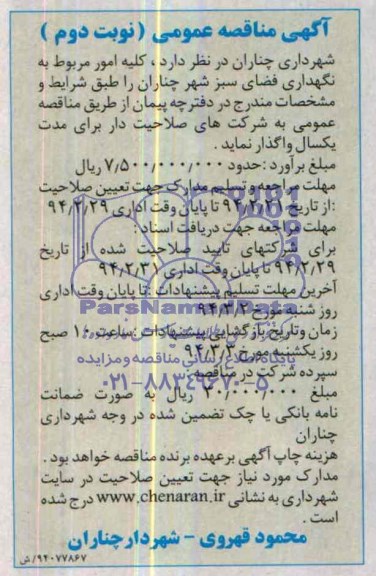 آگهی مناقصه عمومی ( نوبت دوم )
شهرداری چناران در نظر دارد ، کلیه امور مربوط به
نگهداری فضای سبز شهر چناران را طبق شرایط و
مشخصات مندرج در دفترچه پیمان از طریق مناقصه
عمومی به شرکت های صلاحیت دار برای مدت
یکسال واگذار نماید .
مبلغ برآورد : حدود ۷٫۵۰۰٫۰۰۰٫۰۰۰ ریال
مهلت مراجعه و تسلیم مدارک جهت تعیین صلاحیت
: از تاریخ ۹۴٫۲٫۲۱ تا پایان وقت اداری ۹۴٫۲٫۲۹
مهلت مراجعه جهت دریافت اسناد :
برای شرکتهای تایید صلاحیت شده از تاریخ
۹۴٫۲٫۲۹ تا پایان وقت اداری ۹۴٫۲٫۳۱
آخرین مهلت تسلیم پیشنهادات : تا پایان وقت اداری
روز شنبه مورخ
ParsNamadData
زمان وتاریخ بازگشایی پیشنهادات : ساعت ۱۰ صبح
روز یکشنبه مورخ ۹۴٫۳٫۳
پایگاه اطلاع رسانی مناقصه و مزایده
سپرده شرکت در مناقصه :
۰۲۱-۸۸۳۴۹۶۷۰-۵
مبلغ ۳۰٫۰۰۰٫۰۰۰ ریال به صورت ضمانت
نامه بانکی یا چک تضمین شده در وجه شهرداری
چناران
هزینه چاپ آگهی بر عهده برنده مناقصه خواهد بود .
مدارک مورد نیاز جهت تعیین صلاحیت در سایت
شهرداری به نشانی www.chenaran.ir درج شده
است .
محمود قهروی - شهردار چناران
۹۴۰۷۷۸۶۷/ش